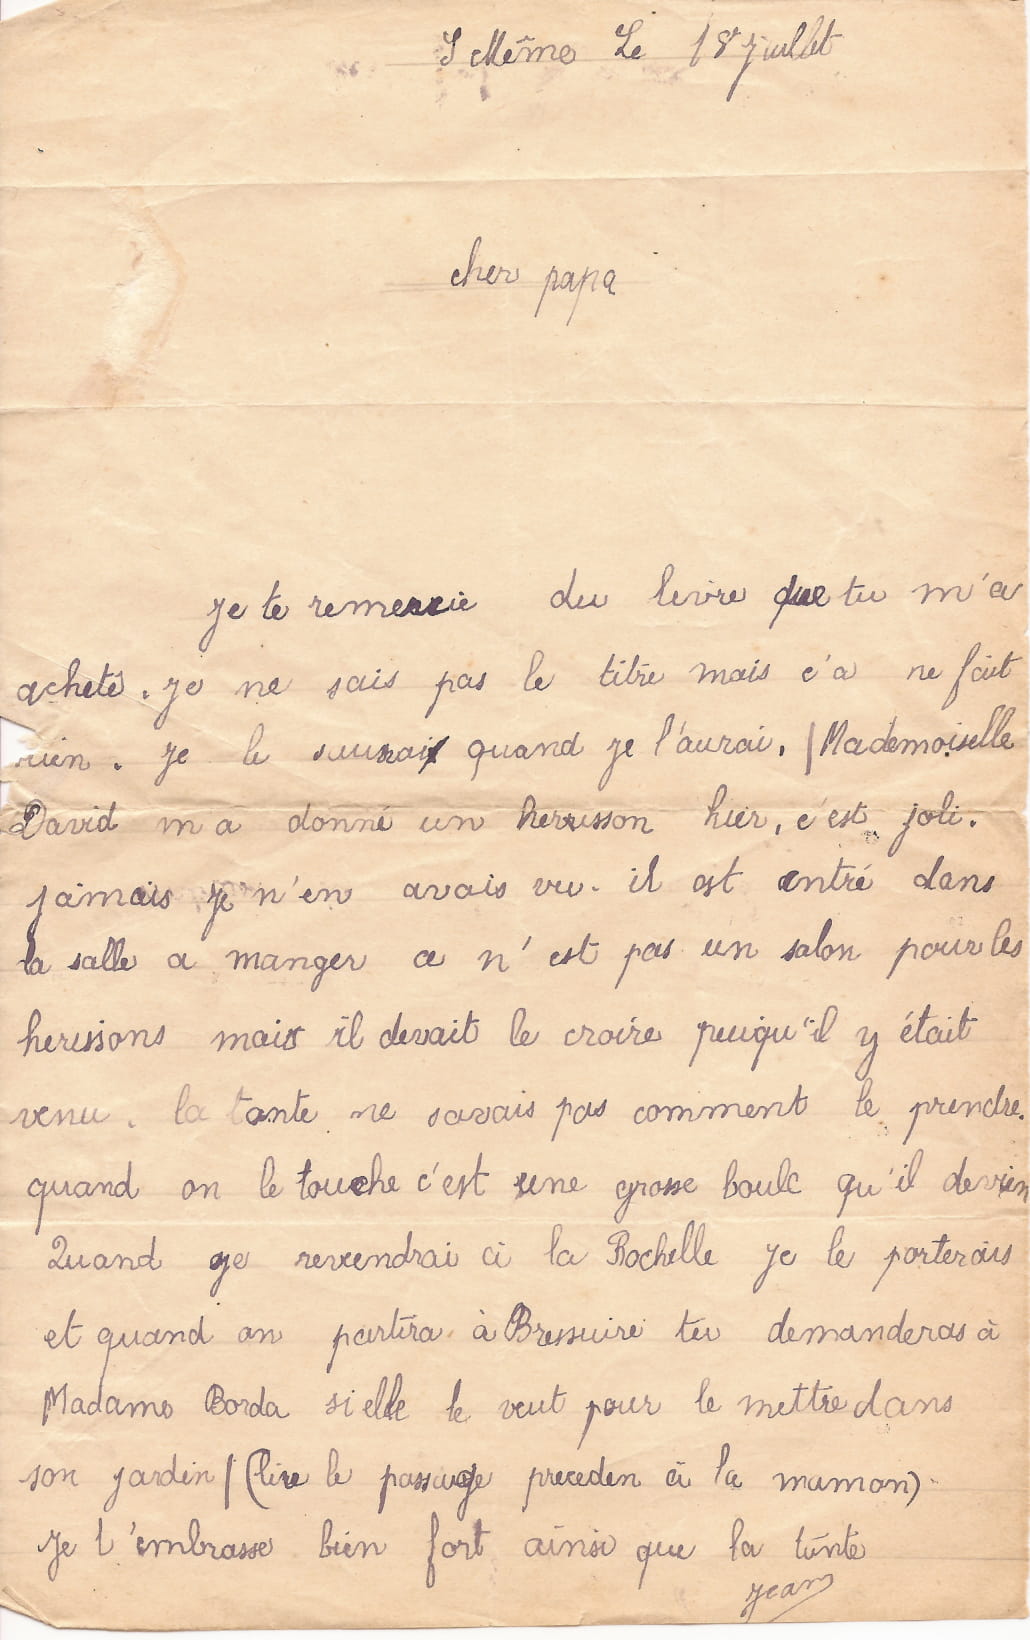 S Même Le 18 juillet
cher papa
je te remercie du livre que tu m'a
acheté. je ne sais pas le titre mais c'a ne fait
rien. je le saurai quand je l'aurai. / Mademoiselle
David m a donné un herrisson hier, c'est joli.
jamais je n'en avais vu. il est entré dans
la salle a manger ce n'est pas un salon pour les
herissons mais il devait le croire puiqu'il y était
venu. la tante ne savais pas comment le prendre.
quand on le touche c'est une grosse boule qu'il devien
Quand je reviendrai à la Rochelle je le porterais
et quand on partira à Bressuire tu demanderas à
Madame Borda si elle le veut pour le mettre dans
son jardin / (lire le passage preceden à la maman)
je t'embrasse bien fort ainsi que la tante
jean